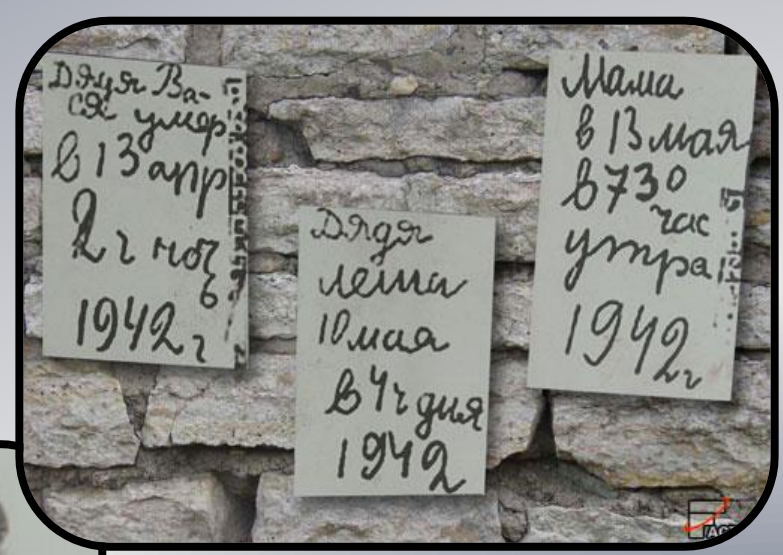 Дядя Ва-
ся умер
в 13 апр
2 ч ноч
ь
1942 г
Дядя
Леша
10 мая
в 4 ч дня
1942
Мама
в 13 мая
в 730
час
утра
1942 г
АСТ